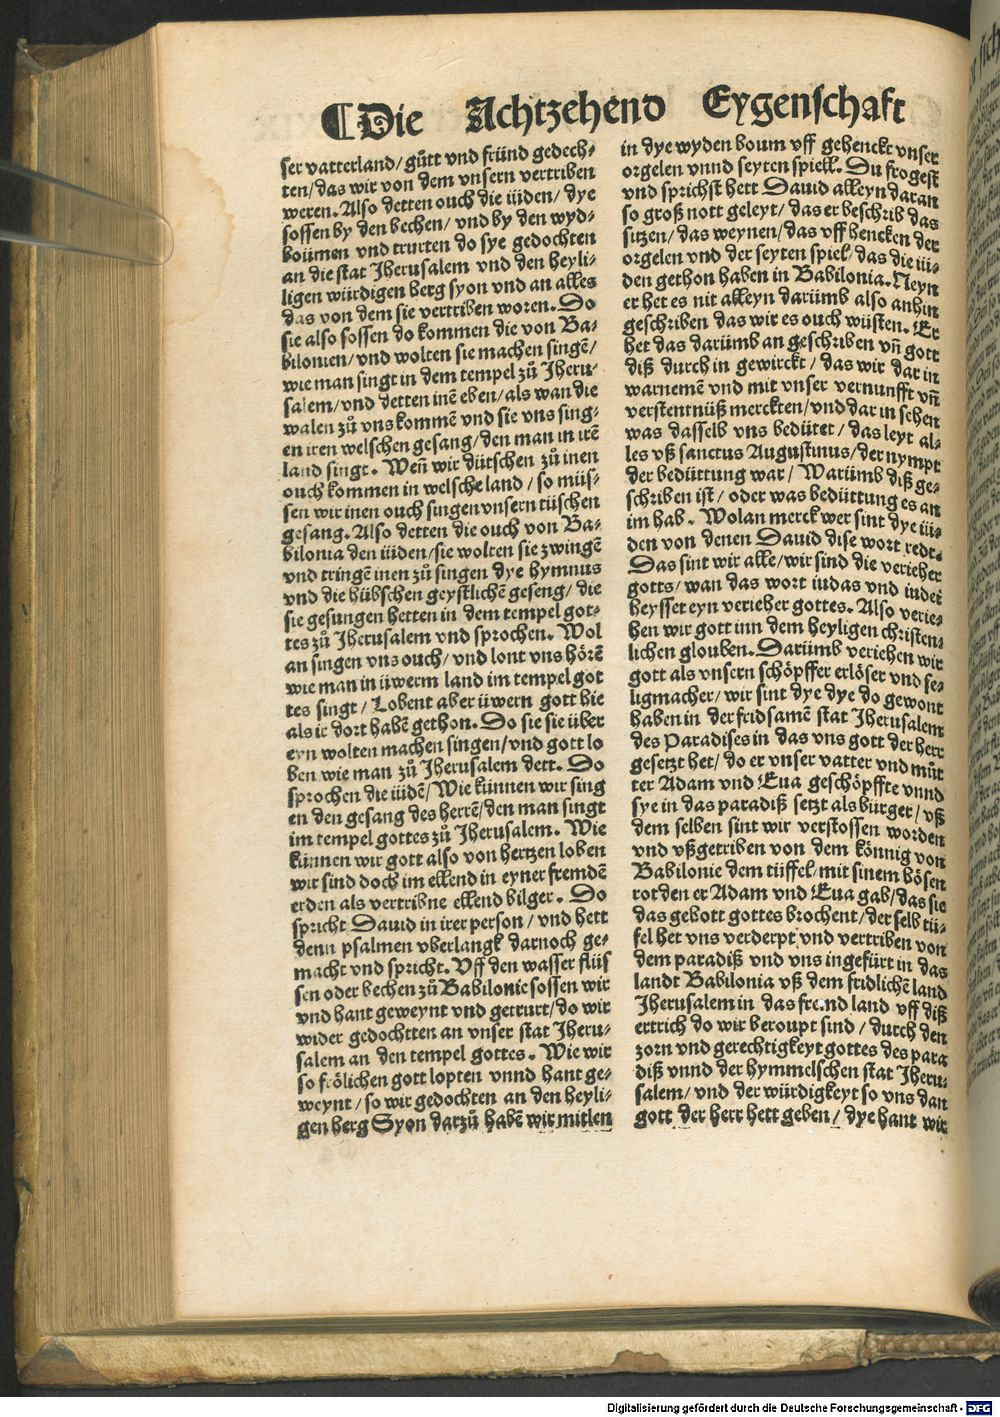 ¶Die Achtzehend Eygenschaft
ser vatterland/gůtt vnd fründ gedech-
ten/das wir von dem vnsern vertriben
weren. Also detten ouch die iüden/ dye
sossen by den bechen/ vnd by den wyd-
boümen vnd trurten do sye gedochten
an die stat Jherusalem vnd den heyli-
ligen würdigen berg syon vnd an alles
das von dem sie vertriben woren. Do
sie also sossen do kommen die von Ba-
bilonien/vnd wolten sie machen singē/
wie man singt in dem tempel zů Jheru-
salem/vnd detten inē eben/als wan die
walen zů vns kommē vnd sie vns sing-
en iren welschen gesang/den man in irē
land singt. Weñ wir dütschen zů inen
ouch kommen in welsche land/ so müs-
sen wir inen ouch singen vnsern tüschen
gesang. Also detten die ouch von Ba-
bilonia den iüden/sie wolten sie zwingē
vnd tringē inen zů singen dye hymnus
vnd die hübschen geystlichē geseng/ die
sie gesungen hetten in dem tempel got-
tes zů Jherusalem vnd sprochen. Wol
an singen vns ouch/vnd lont vns hörē
wie man in üwerm land im tempel got
tes singt/ Lobent aber üwern gott hie
als ir dort habē gethon. Do sie sie über
eyn wolten machen singen/vnd gott lo
ben wie man zů Jherusalem dett. Do
sprochen die iüdē/Wie künnen wir sing
en den gesang des herrē/den man singt
im tempel gottes zů Jherusalem. Wie
künnen wir gott also von hertzen loben
wir sind doch im ellend in eyner fremdē
erden als vertribne ellend bilger. Do
spricht Dauid in irer person/ vnd hett
denn psalmen vberlangk darnoch ge-
macht vnd spricht. Vff den wasser flüs
sen oder bechen zů Babilonie sossen wir
vnd hant geweynt vnd getrurt/do wir
wider gedochtten an vnser stat Jheru-
salem an den tempel gottes. Wie wir
so frölichen gott lopten vnnd hant ge-
weynt/so wir gedochten an den heyli-
gen berg Syon darzů habē wir mitlen
in dye wyden boum vff gehenckt vnser
orgelen vnnd seyten spiell. Du frogest
vnd sprichst hett Dauid alleyn daran
so groß nott geleyt/das er beschrib das
sitzen/das weynen/das vff hencken der
orgelen vnd der seyten spiel/das die iü-
den gethon haben in Babilonia. Neyn
er het es nit alleyn darümb also anhin
geschriben das wir es ouch wüsten. Er
het das darümb an geschriben vñ gott
diß durch in gewirckt/das wir dar in
warnemē vnd mit vnser vernunfft vñ
verstentnüß merckten/vnd dar in sehen
was dasselb vns bedütet/das leyt al-
les vß sanctus Augustinus/der nympt
der bedüttung war/ Warümb diß ge-
schriben ist/ oder was bedüttung es an
im hab. Wolan merck wer sint dye iü-
den von denen Dauid dise wort redt.
Das sint wir alle/wir sind die verieher
gotts/wan das wort iudas vnd iudei
heysset eyn verieher gottes. Also verie-
hen wir gott inn dem heyligen christen-
lichen glouben. Darümb veriehen wir
gott als vnsern schöpffer erlöser vnd se-
ligmacher/wir sint dye dye do gewont
haben in der fridsamē stat Jherusalem
des Paradises in das vns gott der herr
gesetzt het/do er vnser vatter vnd můt
ter Adam vnd Eua geschöpffte vnnd
sye in das paradiß setzt als bürger/vß
dem selben sint wir verstossen worden
vnd vßgetriben von dem könnig von
Babilonie dem tüffel/mit sinem bösen
rot den er Adam vnd Eua gab/das sie
das gebott gottes brochent/der selb tü-
fel het vns verderpt vnd vertriben von
dem paradiß vnd vns ingefürt in das
landt Babilonia vß dem fridlichē land
Jherusalem in das fremd land vff diß
ertrich do wir beroupt sind/ durch den
zorn vnd gerechtigkeyt gottes des para
diß vnnd der hymmelschen stat Jheru-
salem/ vnd der würdigkeyt so vns dan
gott der herr hett geben/ dye hant wir
Digitalisierung gefördert durch die Deutsche Forschungsgemeinschaft - DFG